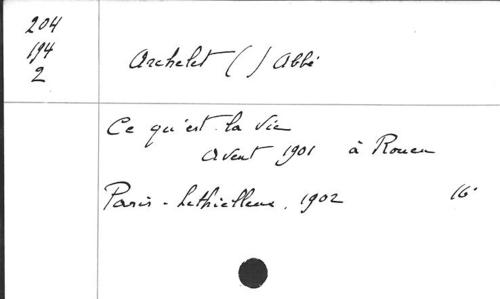 204
194
2
Archelet ( ) Abbé
Ce qu'est la vie
Avent 1901 à Rouen
Paris - Lethielleux, 1902 16°